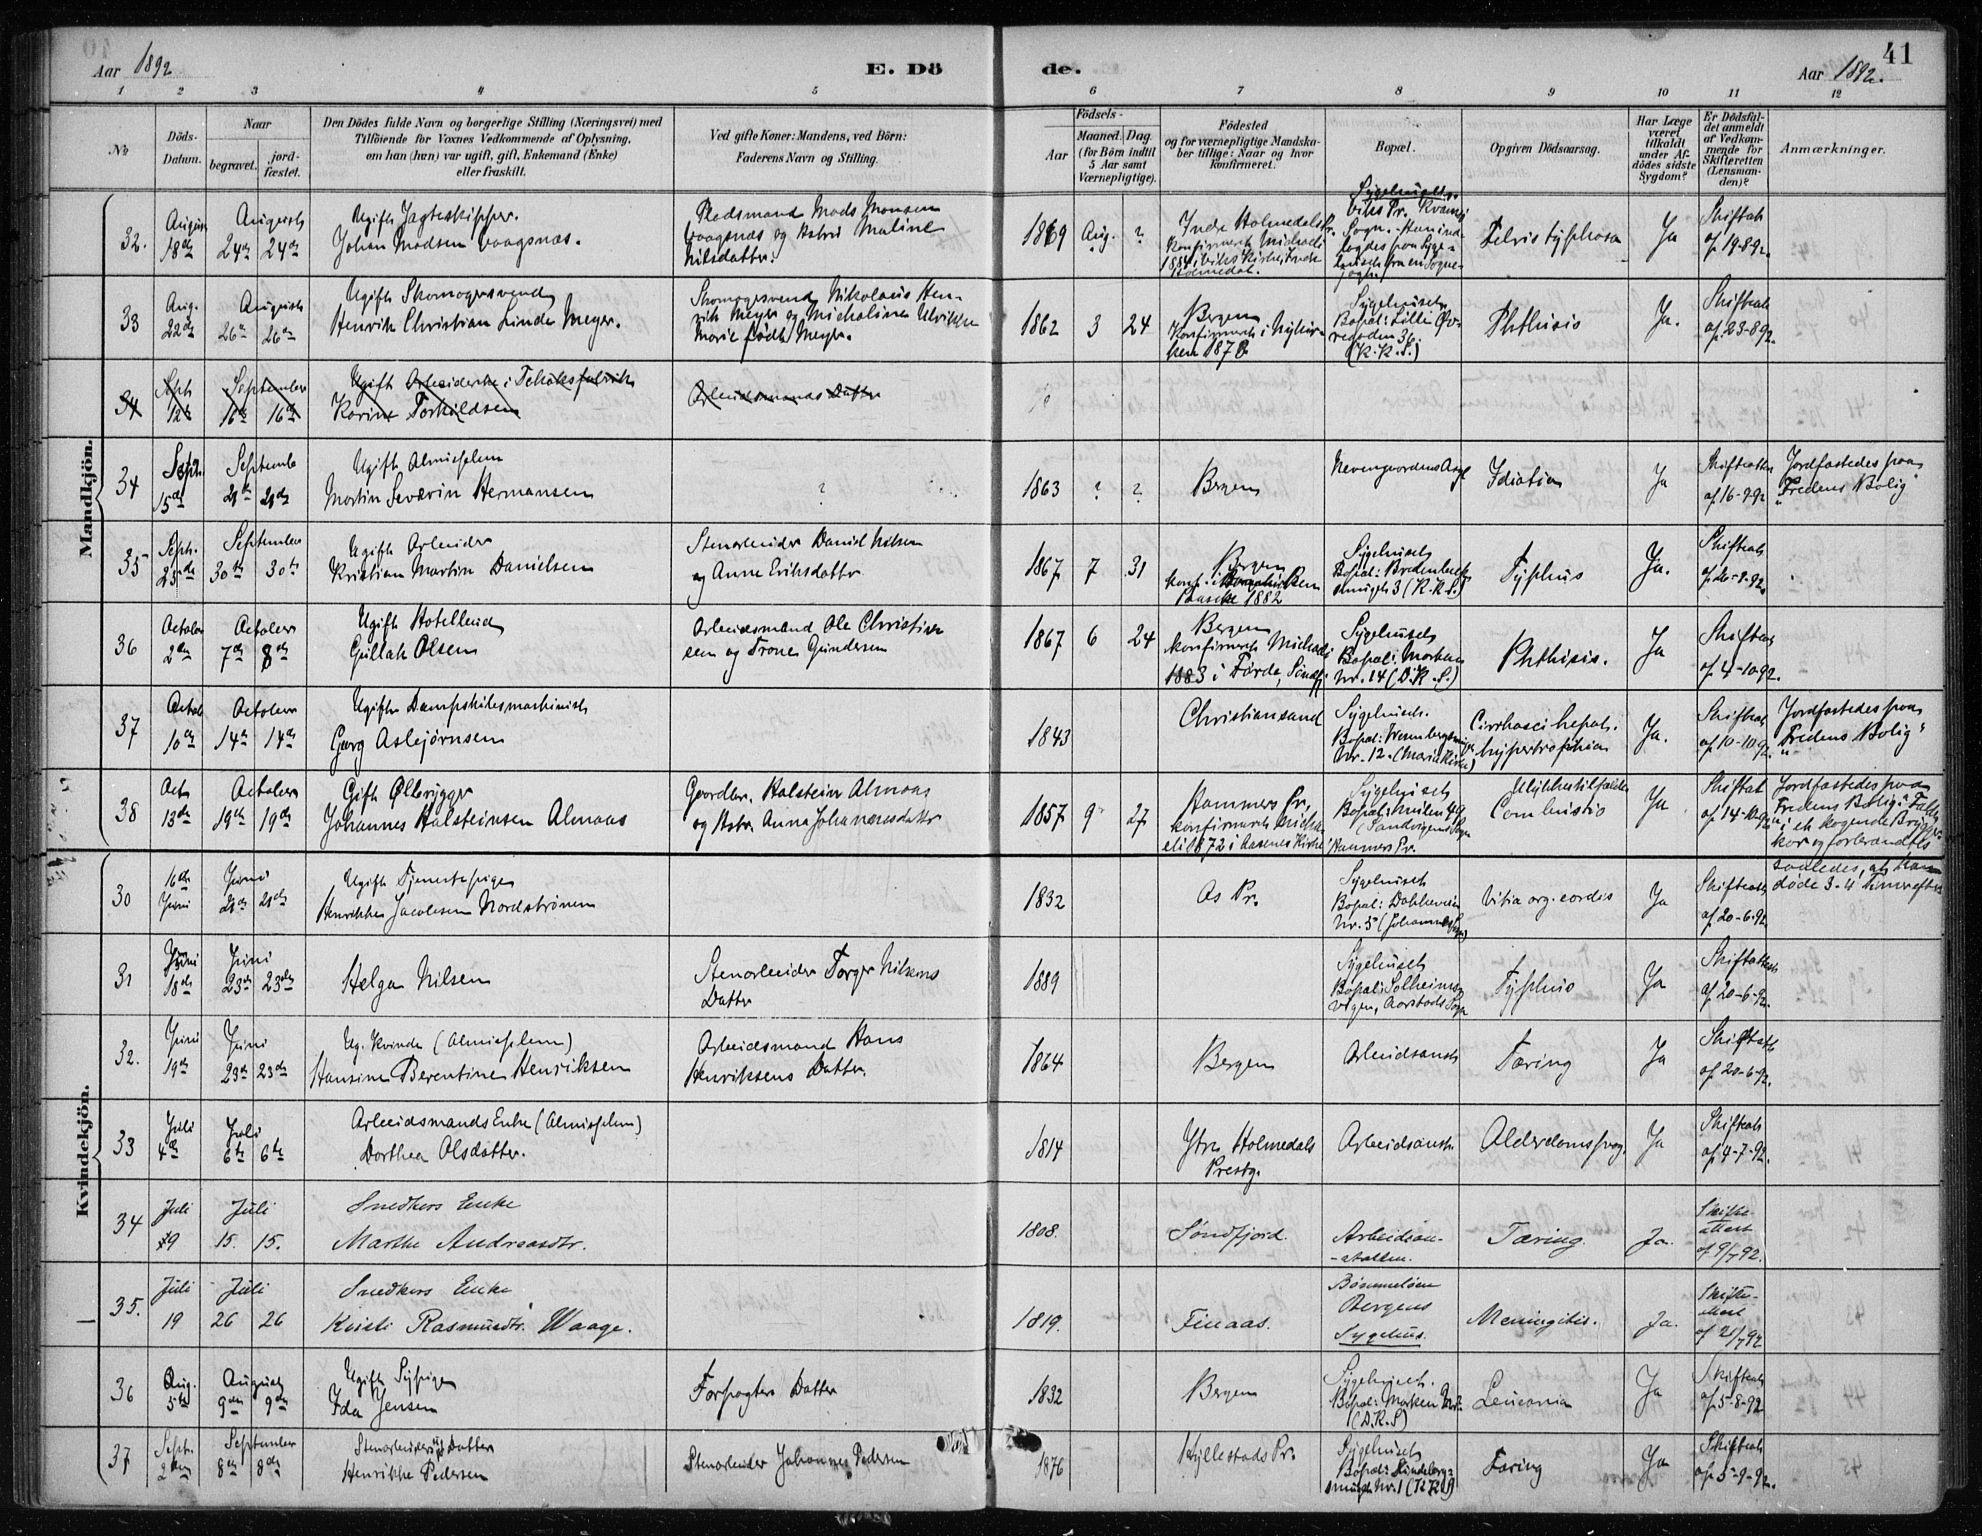 Aar 1892
E. Dö
de.
41
Aar 1892.
1 2 3 4 5 6 7 8 9 10 11 12
No
Döds-Datum.
Naar
begravet.
jord-fæstet.
Den Dödes fulde Navn og borgerlige Stilling (Næringsvei) med
Tilföiende for Voxnes Vedkommende af Oplysning,
om han (hun) var ugift, gift, Enkemand (Enke)
eller fraskilt.
Ved gifte Koner: Mandens, ved Börn:
Faderens Navn og Stilling.
Födsels-
Aar
Maaned. Dag.
(for Börn indtil
5 Aar samt
Værnepligtige).
Födested
og for værnepligtige Mandska-
ber tillige: Naar og hvor
konfirmeret.
Bopæl.
Opgiven Dödsaarsag.
Har Læge
været
tilkaldt
under Af-
dödes sidste
Sygdom?
Er Dödsfal-
det anmeldt
af Vedkom-
mende for
Skifteretten
(Lensman-
den)?
Anmærkninger.
Mandkjön.
32.
18de
24de 24de
Ugift Jagteskipper.
Johan Madsen Vaagsnæs.
Pladsmand Mads Monsen
Vaagsnæs og Hustru Maline
Nilsdatter.
1869 Aug. ?
Indre Holmedals Pr.
Konfirmeret Michaeli
1884 i Viks Kirke, Indre
Holmedal.
Sygehuset.
Ja
af 19-8-92.
33
Aug.
22de
26de 26de
Ugift Skomagersvend
Henrik Christian Linde Meyer.
Skomagersvend Nikolaus Hen-
rik Meyer og Micheline Ulrikke
Marie född Meyer.
1862 3 24
Bergen
Sygehuset.
(K.K.S.)
Phthisis
Ja.
af 23-8-92.
34
Sept.
12te
September
16de 16de
Ugift Arbeiderske i Tobaksfabrik
Karine Torkildsen
Arbeidsmands Datter
34
Sept.
15de
21de 21de
Ugift Almisselem
Martin Severin Hermansen
?
1863 ? ?
Bergen
Idiotien
Ja
af 16-9-92
Jordfæstedes paa
"Fredens Bolig"
35
Sept.
25de
September
30te 30te
Ugift Arbeider
Kristian Martin Danielsen
Stenarbeider Daniel Nilsen
og Anne Eriksdatter
1867 7 31
Bergen
1882
Sygehuset
Typhus
Ja.
36
2den
7de 8de
Ugift Hotelbud
Gullak Olsen
Arbeidsmand Ole Christian-
sen og Trone Gundersen
1867 6 24
Bergen
konfirmeret Michaeli
1883 i Förde, Söndfj.
Sygehuset
Bopæl: Marken
Nr. 14 (D.K.S.)
Phthisis.
Ja
af 4-10-92.
37
10de
14de 14de
Ugift Dampskibsmaskinist
Georg Asbjørnsen
1843
Christiansand
Sygehuset.
Nr. 12. (Mariakirke)
Cirrhosis hepat.
hypertrophica
Ja.
af 10-10-92.
Jordfæstedes paa
"Fredens Bolig"
38
Oct.
13de
19de 19de
Gift Ølbrygger
Johannes Halsteinsen Almaas
Gaardbr. Halstein Almaas
og Hustru Anna Johannesdatter
1857 9 27
Hammers Pr.
konfirmeret Micha-
eli 1872 i Aasenes Kirke
Sygehuset
Hammers Pr.
Ulykkestilfælde
Combustio
Ja
af 14-10-92
Jordfæstedes paa
"Fredens Bolig". Faldt
i et kogende Brygge-
kar og forbrændtes
saaledes, at han
døde 3-4 Timer efter
Kvindekjön.
30
16de
Juni
Juni
21de 21de
Ugift Tjenestepige
Henrikke Jacobsen Nordstrønen
1832
Os Pr.
Sygehuset
Vitia org. cordis
Ja
af 20-6-92.
31
Juni
18de
Juni
23de 23de
Helga Nilsen
Stenarbeider Torger Nilsens
Datter
1889
Sygehuset
Bopæl: Solheims-
vigen, Aarstads Sogn
Typhus
Ja
af 20-6-92.
32.
Juni
19de
Juni
23de 23de
Ug. Kvinde (Almisselem)
Hansine Berentine Henriksen
Arbeidsmand Hans
Henriksens Datter.
1864
Bergen
Arbeidsanst.
Tæring
Ja
af 20-6-92.
33
Juli
4de
Juli
6te 6te
Arbeidsmands Enke (Almisselem)
Dorthea Olsdatter.
1814
Ytre Holmedals
Prestg.
Arbeidsanst.
Alderdomssvag.
Ja
af 4-7-92.
34
Juli
9
Juli
15. 15.
Snedkers Enke
Marthe Andreasdtr.
1808.
Söndfjord.
Arbeidsan-
stalten.
Tæring.
Ja.
Skifte-
attest
af 9/7 92.
35.
Juli
19
Juli
26 26
Snedkers Enke
Kristi Rasmusdtr. Waage.
1819.
Finaas.
Bømmeløen
Bergens
Sygehus.
Meningitis.
Ja.
Skifte-
attest
af 21/7 92
36
Aug.
5te
August
9de 9de
Ugift Sypige
Ida Jensen
Forpagters Datter
1832
Bergen
Sygehuset.
(D.K.S)
Ja
af 5-8-92
37
Sept.
2den
September
8de 8de
Henrikke Pedersen
Stenarbeider Johannes Pedersen
1876
Hyllestads Pr.
Sygehuset
Tæring
Ja
af 5-9-92.